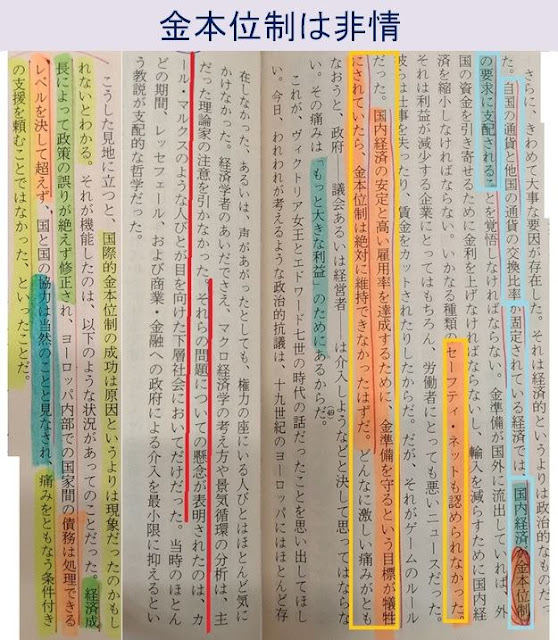 金本位制は非情
さらに、きわめて大事な要因が存在した。それは経済的というよりは政治的なものだっ
た。自国の通貨と他国の通貨の交換比率が固定されている経済では、国内経済が金本位制
の要求に支配されることを覚悟しなければならない。金準備が国外に流出していれば、外
国の資金を引き寄せるために金利を上げなければならないし、輸入を減らすために国内経
済を縮小しなければならない。いかなる種類のセーフティ・ネットも認められなかった。
それは利益が減少する企業にとってはもちろん、労働者にとっても悪いニュースだった。
彼らは仕事を失ったり、賃金をカットされたりしたからだ。だが、それがゲームのルール
だった。国内経済の安定と高い雇用率を達成するために、金準備を守るという目標が犠牲
にされていたら、金本位制は絶対に維持できなかったはずだ。どんなに激しい痛みがとも
なおうと、政府――議会あるいは経営者――は介入しようなどと決して思ってはならな
い。その痛みは「もっと大きな利益」のためにあるからだ。
これが、ヴィクトリア女王とエドワード七世の時代の話だったことを思い出してほし
い。今日、われわれが考えるような政治的抗議は、十九世紀のヨーロッパにはほとんど存
在しなかった、あるいは、声があがったとしても、権力の座にいる人びとはほとんど気に
かけなかった。経済学者のあいだでさえ、マクロ経済学の考え方や景気循環の分析は、主
だった理論家の注意を引かなかった。それらの問題についての懸念が表明されたのは、カ
ール・マルクスのような人びとが目を向けた下層社会においてだけだった。当時のほとん
どの期間、レッセフェール、および商業・金融への政府による介入を最小限に抑えるとい
う教説が支配的な哲学だった。
こうした見地に立つと、国際的金本位制の成功は原因というよりは現象だったのかもし
れないとわかる。それが機能したのは、以下のような状況があってのことだった。経済成
長によって政策の誤りが絶えず修正され、ヨーロッパ内部での国家間の債務は処理できる
レベルを決して超えず、国と国の協力は当然のことと見なされ、痛みをともなう条件付き
の支援を頼むことではなかった、といったことだ。